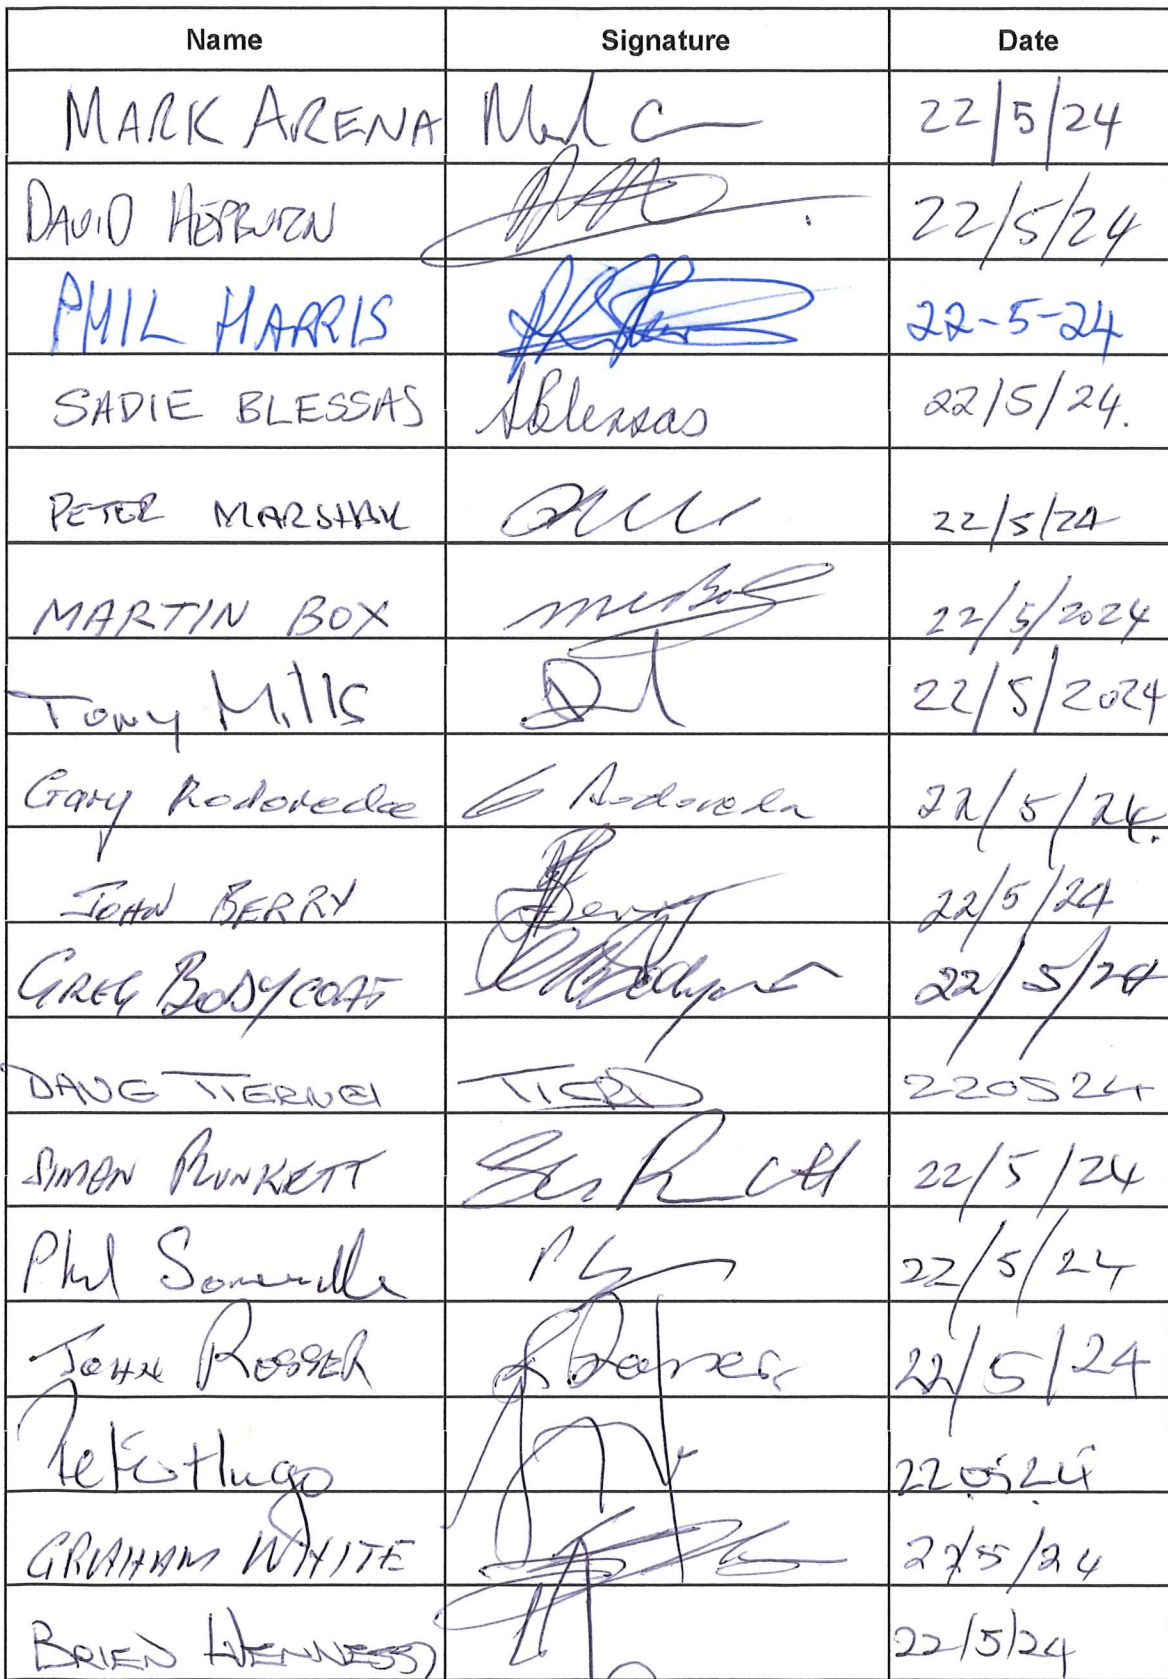 Name Signature Date
MARK ARENA 22/5/24
DAVID HEPBURN 22/5/24
PHIL HARRIS 22-5-24
SADIE BLESSAS SBlessas 22/5/24.
PETER MARSHALL 22/5/24
MARTIN BOX 22/5/2024
Tony Mills 22/5/2024
Gary Rodoreda G Rodoreda 22/5/24.
JOHN BERRY Berry 22/5/24
GREG BODYCOAT 22/5/24
DAVE TIERNEY 220524
SIMON PLUNKETT 22/5/24
Phil Somerville 22/5/24
JOHN ROSSER Rosser 22/5/24
Peter Hugo 220524
GRAHAM WHITE 22/5/24
BRIEN HENNESSY 22/5/24